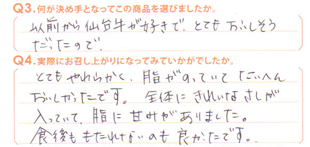 Q3.何が決め手となってこの商品を選びましたか。
以前から仙台牛が好きで、とてもおいしそう
だったので。
Q4.実際にお召し上がりになってみていかがでしたか。
とてもやわらかく、脂がのっていてたいへん
おいしかったです。全体にきれいなさしが
入っていて、脂に甘みがありました。
食後ももたれないのも良かったです。